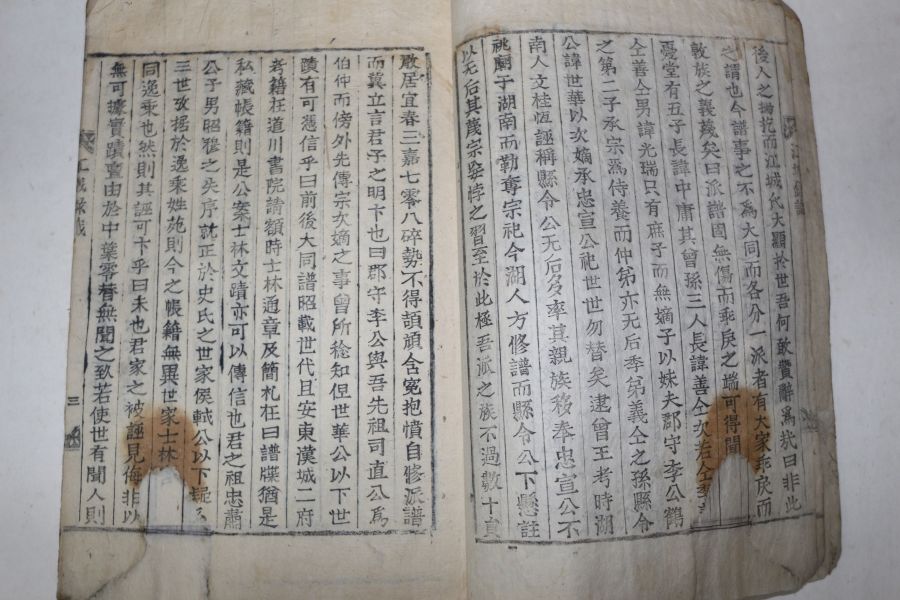 後人之揚扢而江城氏大顯於世吾何敢費辭爲哉曰非此
之謂也今譜事之不爲大同而各分一派者有大家乖戾而
敦族之義蔑矣曰派譜固無傷而乖戾之端可得聞
憂堂有五子長諱中庸其曾孫三人長諱善仝次若仝季
仝善仝男諱光瑞只有庶子而無嫡子以妹夫郡守李公鶴
之第二子承宗爲侍養而仲弟亦无后季弟義仝之孫縣令
公諱世華以次嫡承忠宣公祀世世勿替矣逮曾王考時湖
南人文桂恆誣稱縣令公无后多率其親族移奉忠宣公不
祧廟于湖南而勒奪宗祀今湖人方修譜而縣令公下懸註
以无后其蔑宗悖之習至於此極吾派之族不過數十
散居宜春三嘉七零八碎勢不得頡頏含寃抱憤自修派譜
而冀立言君子之明卞也曰郡守李公與吾先祖司直公爲
伯仲而傍外先傳宗次嫡之事曾所稔知但世華公以下世
蹟有可憑信乎曰前後大同譜昭載世代且安東漢城二府
考籍在道川書院請額時士林通章及簡札在曰譜牒猶是
私藏帳籍則是公案士林文蹟亦可以傳信也君之祖忠肅
公子男昭穆之失序就正於史氏之世家侯軾公以下
三世攷据於逸乘姓苑則今之帳籍無異世家士林
同逸乘也然則其誣可卞乎曰未也君家之被誣見侮非以
無可據實蹟亶由於中葉零替無聞之致若使世有聞人則
三